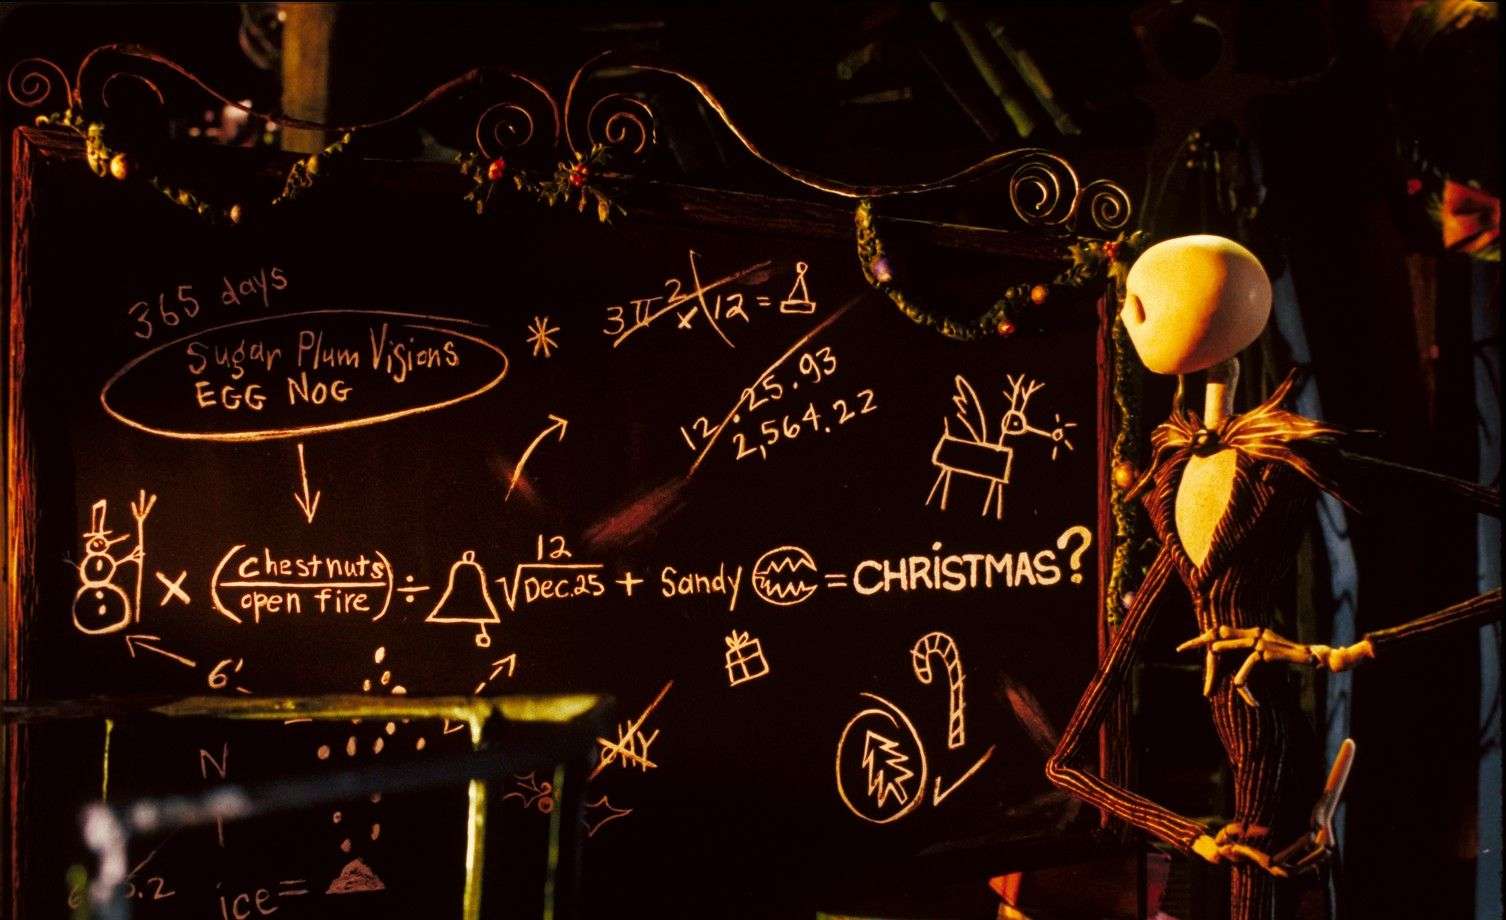 365 days
Sugar Plum Visions
EGG NOG
3π² x 12 =
12.25.93
2,564.22
x (chestnuts / open fire) ÷ √Dec.25 12 + Sandy = CHRISTMAS?
6'
N
ice =